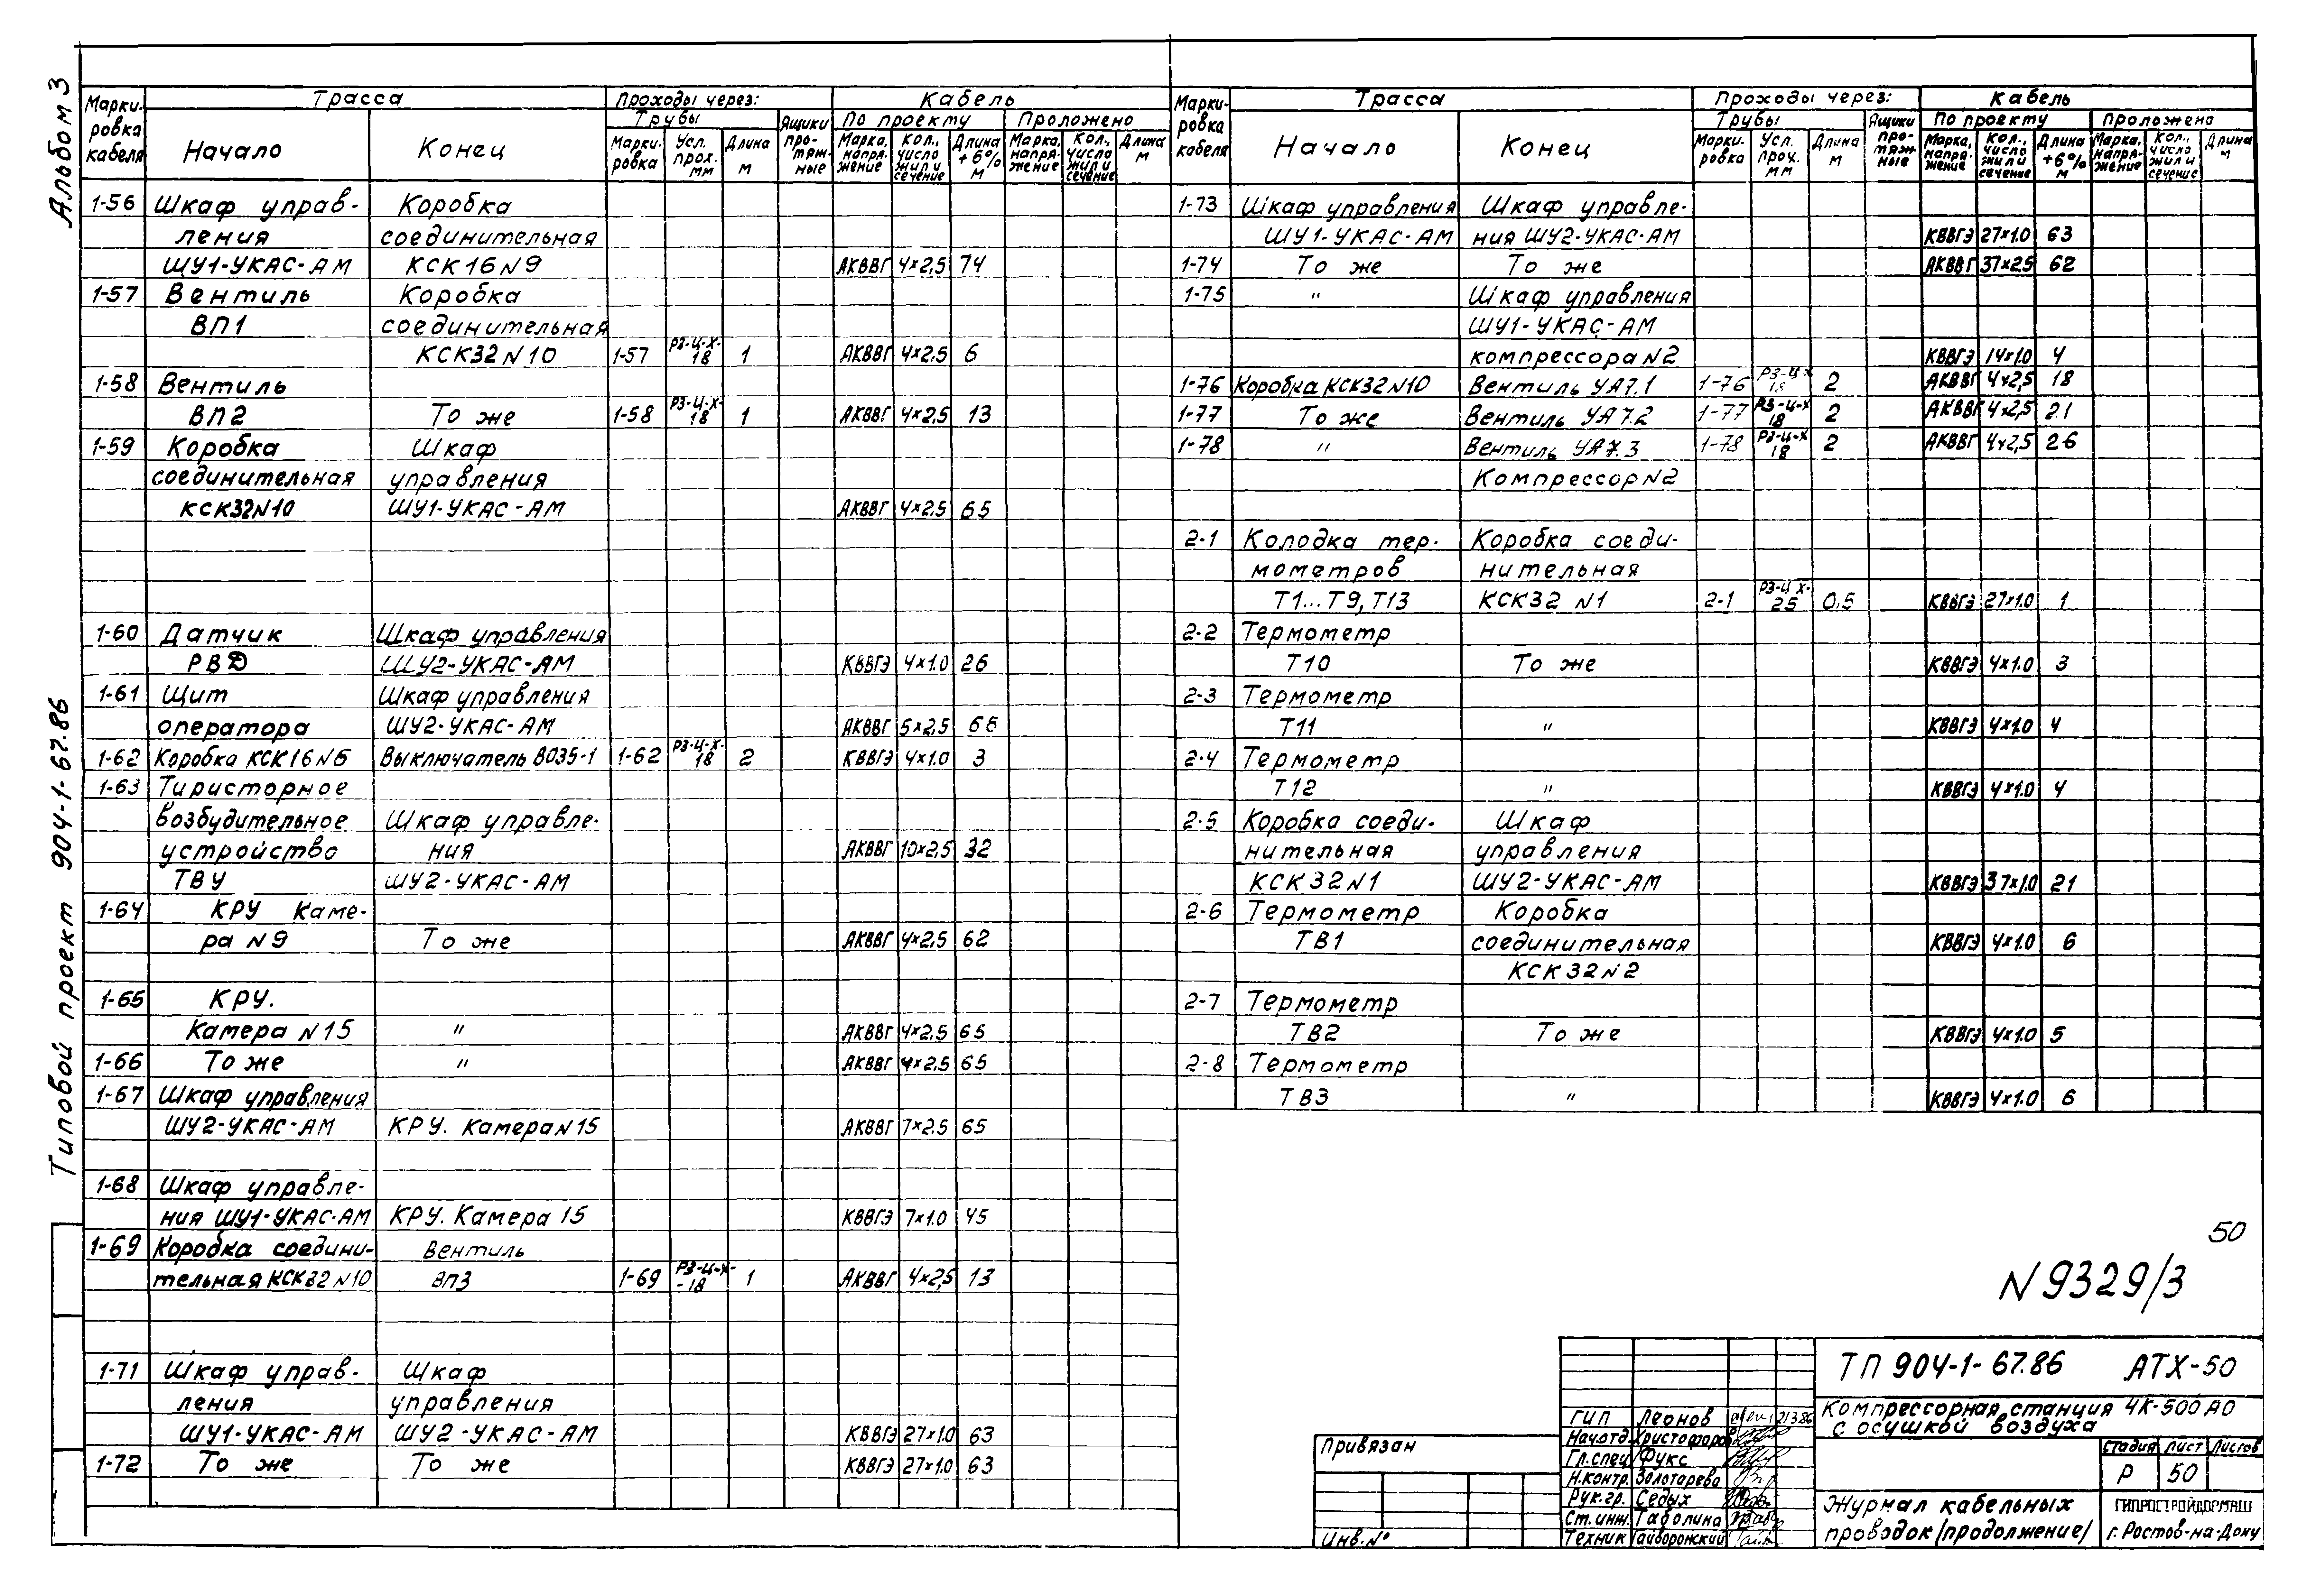 Альбом 3
Типовой проект 904-1-67.86
Марки-ровка кабеля | Трасса | Проходы через: | Кабель
Начало | Конец | Трубы | Ящики про-тяж-ные | По проекту | Проложено
Марки-ровка | Усл. прох. мм | Длина м | Марка, напря-жение | Кол., число жил и сечение | Длина +6% м | Марка, напря-жение | Кол., число жил и сечение | Длина м
1-56 Шкаф управ- Коробка
ления соединительная
ШУ1-УКАС-АМ КСК16 N9 АКВВГ 4×2,5 74
1-57 Вентиль Коробка
ВП1 соединительная
КСК32 N10 1-57 РЗ-Ц-Х-18 1 АКВВГ 4×2,5 6
1-58 Вентиль
ВП2 То же 1-58 РЗ-Ц-Х-18 1 АКВВГ 4×2,5 13
1-59 Коробка Шкаф
соединительная управления
КСК32N10 ШУ1-УКАС-АМ АКВВГ 4×2,5 65
1-60 Датчик Шкаф управления
РВД ШУ2-УКАС-АМ КВВГЭ 4×1.0 26
1-61 Щит Шкаф управления
оператора ШУ2-УКАС-АМ АКВВГ 5×2,5 66
1-62 Коробка КСК16 N6 Выключатель ВОЗ5-1 1-62 РЗ-Ц-Х-18 2 КВВГЭ 4×1.0 3
1-63 Тиристорное
возбудительное Шкаф управле-
устройство ния АКВВГ 10×2,5 32
ТВУ ШУ2-УКАС-АМ
1-64 КРУ Каме-
ра N9 То же АКВВГ 4×2,5 62
1-65 КРУ.
Камера N15 " АКВВГ 4×2,5 65
1-66 То же " АКВВГ 4×2,5 65
1-67 Шкаф управления
ШУ2-УКАС-АМ КРУ. Камера N15 АКВВГ 7×2.5 65
1-68 Шкаф управле-
ния ШУ1-УКАС-АМ КРУ. Камера 15 КВВГЭ 7×1.0 45
1-69 Коробка соедини- Вентиль
тельная КСК32 N10 ВПЗ 1-69 РЗ-Ц-Х--18 1 АКВВГ 4×2,5 13
1-71 Шкаф управ- Шкаф
ления управления
ШУ1-УКАС-АМ ШУ2-УКАС-АМ КВВГЭ 27×1.0 63
1-72 То же То же КВВГЭ 27×1.0 63
Марки-ровка кабеля | Трасса | Проходы через: | Кабель
Начало | Конец | Трубы | Ящики про-тяж-ные | По проекту | Проложено
Марки-ровка | Усл. проч. мм | Длина м | Марка, напря-жение | Кол., число жил и сечение | Длина +6% м | Марка, напря-жение | Кол., число жил и сечение | Длина м
1-73 Шкаф управления Шкаф управле-
ШУ1-УКАС-АМ ния ШУ2-УКАС-АМ КВВГЭ 27×1.0 63
1-74 То же То же АКВВГ 37×2.5 62
1-75 " Шкаф управления
ШУ1-УКАС-АМ
компрессора N2 КВВГЭ 14×1.0 4
1-76 Коробка КСК32N10 Вентиль УА7.1 1-76 РЗ-Ц-Х 18 2 АКВВГ 4×2,5 18
1-77 То же Вентиль УА7.2 1-77 РЗ-Ц-Х 18 2 АКВВГ 4×2,5 21
1-78 " Вентиль УА7.3 1-78 РЗ-Ц-Х 18 2 АКВВГ 4×2,5 26
Компрессор N2
2-1 Колодка тер- Коробка соеди-
мометров нительная
Т1...Т9, Т13 КСК32 N1 2-1 РЗ-Ц Х-25 0,5 КВВГЭ 27×1.0 1
2-2 Термометр
Т10 То же КВВГЭ 4×1.0 3
2-3 Термометр
Т11 " КВВГЭ 4×1.0 4
2-4 Термометр
Т12 " КВВГЭ 4×1.0 4
2-5 Коробка соеди- Шкаф
нительная управления
КСК32N1 ШУ2-УКАС-АМ КВВГЭ 37×1.0 21
2-6 Термометр Коробка
ТВ1 соединительная КВВГЭ 4×1.0 6
КСК32N2
2-7 Термометр
ТВ2 То же КВВГЭ 4×1.0 5
2-8 Термометр
ТВ3 " КВВГЭ 4×1.0 6
50
N9329/3
ТП 904-1-67.86 АТХ-50
Компрессорная станция 4К-500АО
с осушкой воздуха
Стадия Лист Листов
Р 50
Журнал кабельных
проводок /продолжение/
ГИПРОСТРОЙДОРМАШ
г. Ростов-на-Дону
ГИП Леонов 21386
Нач.отд. Христофоров
Гл.спец. Фукс
Н.контр. Золотарева
Рук.гр. Седых
Ст.инж. Таболина
Техник Гайворонский
Привязан
Инв.N°